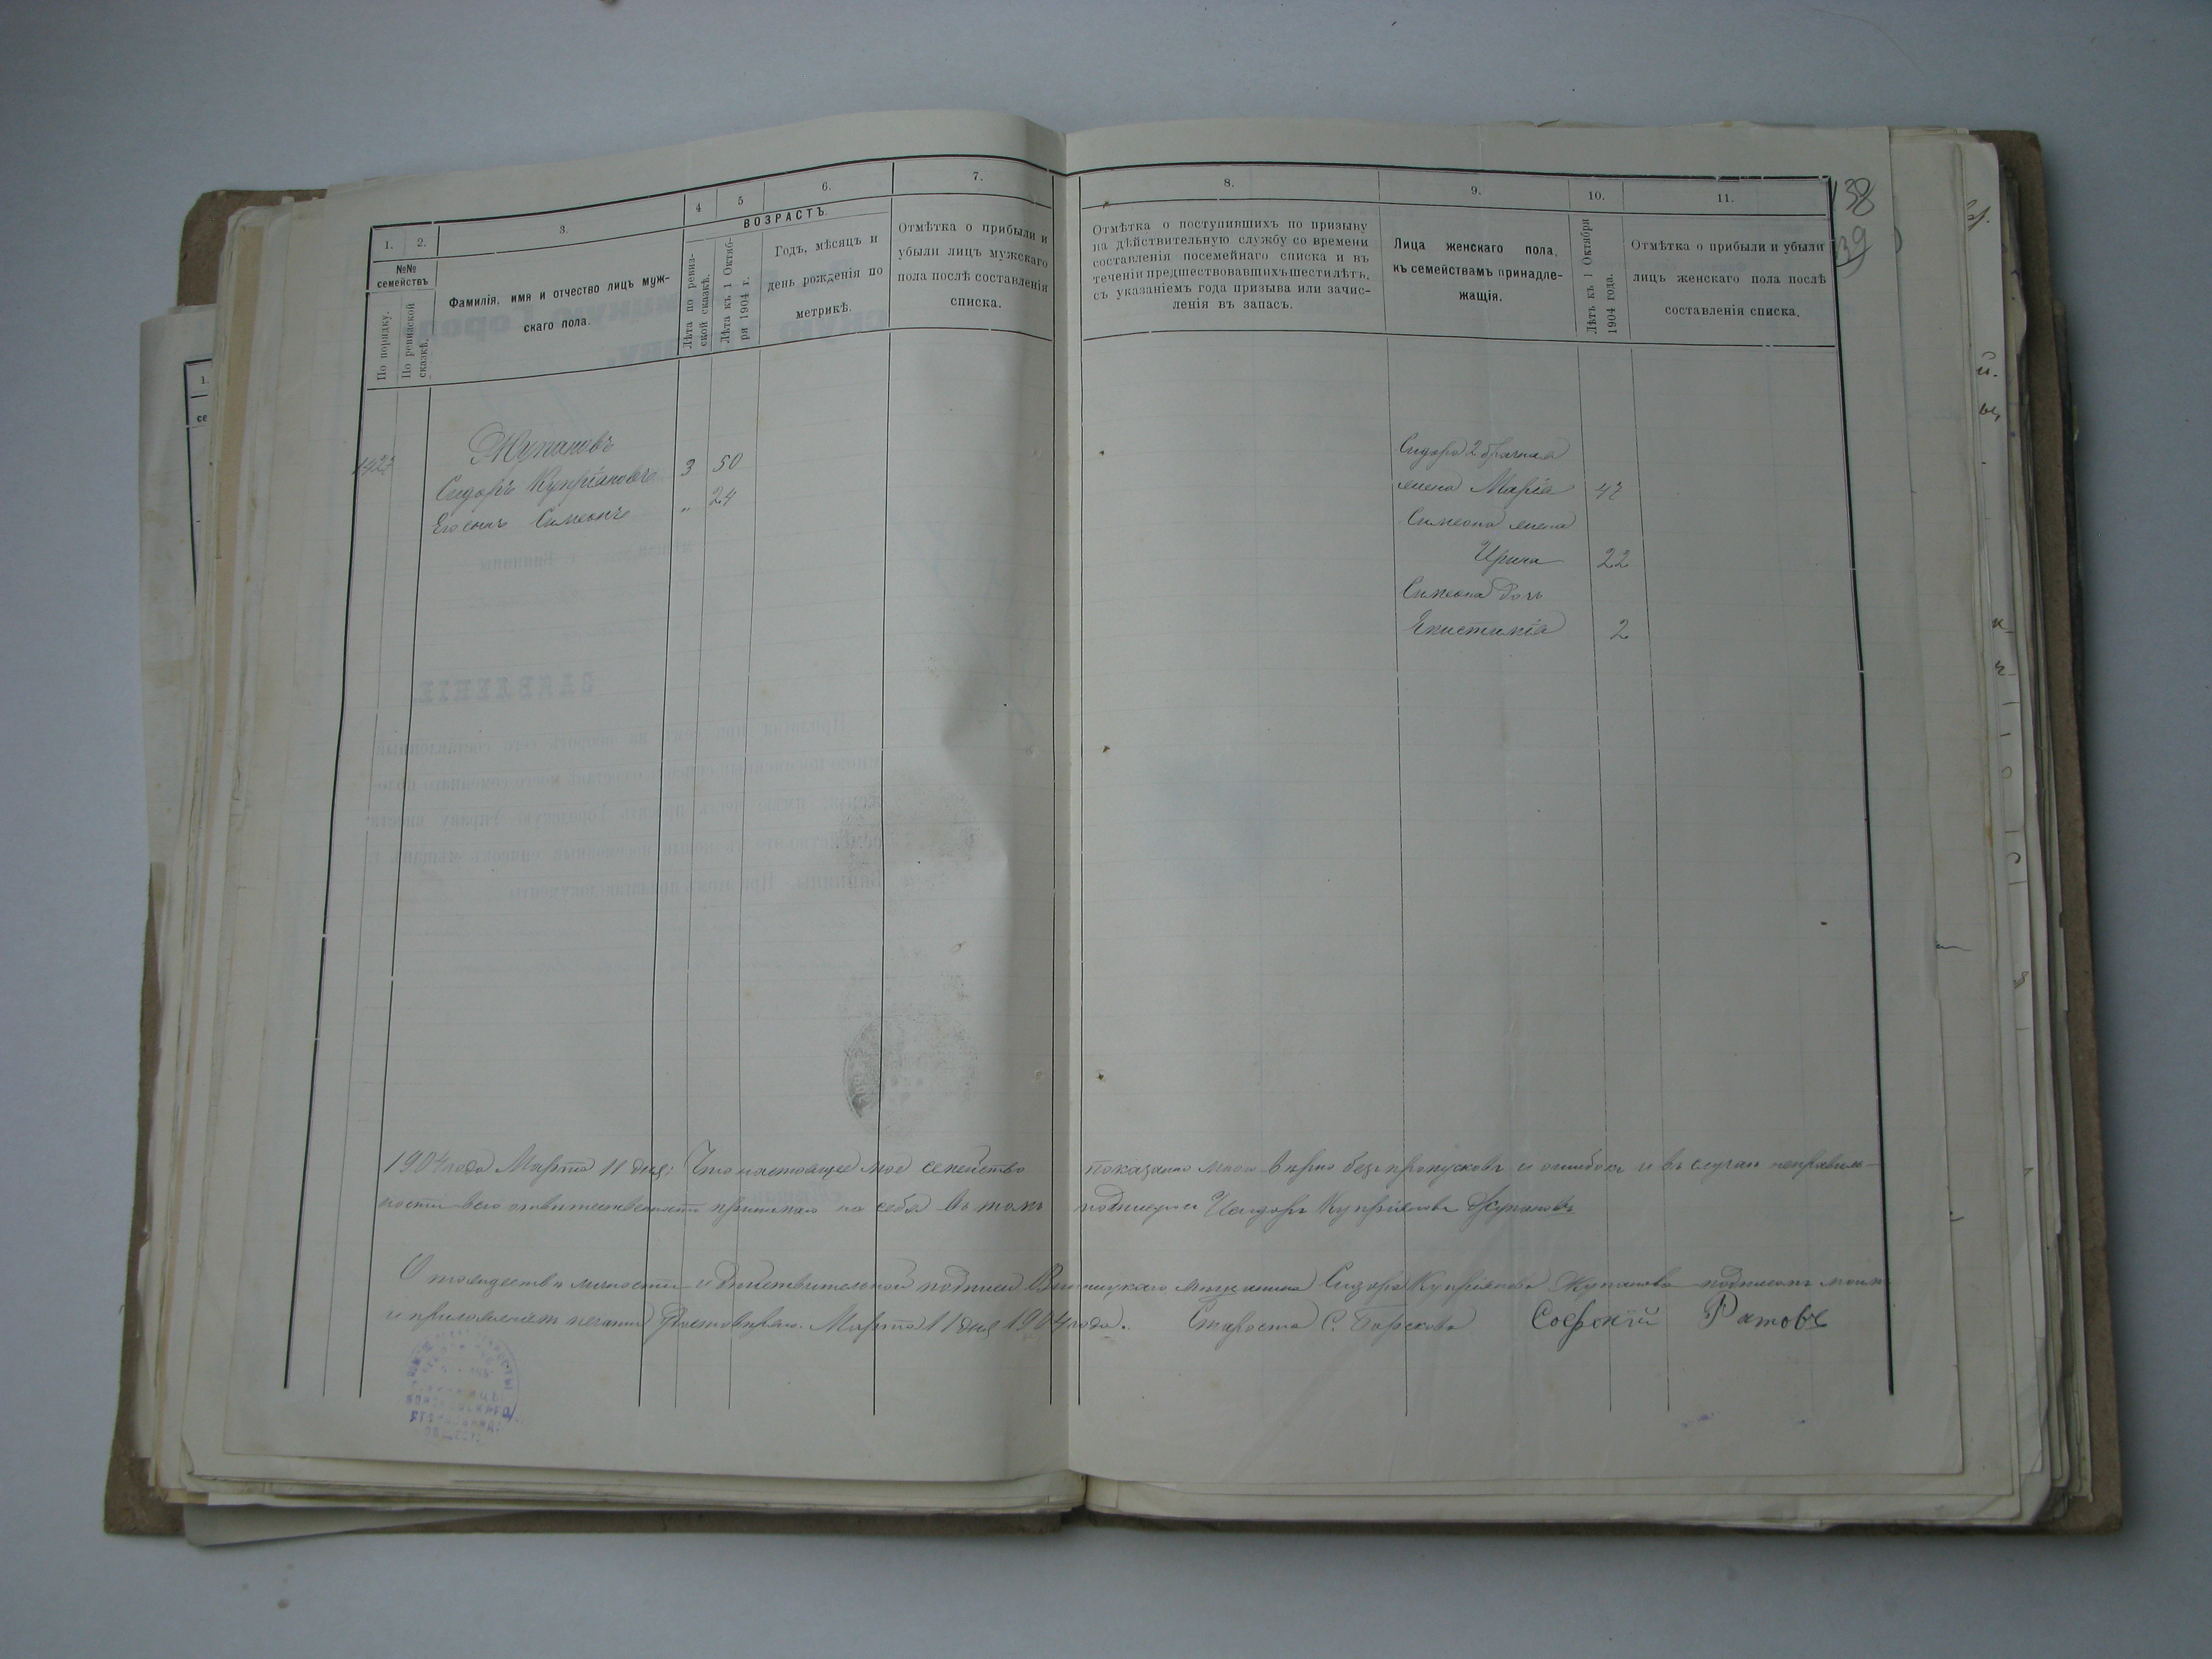 1.
2.
3.
4
5
6.
7.
№№ семействъ
По порядку.
По ревизской сказкѣ.
Фамилія, имя и отчество лицъ муж-
скаго пола.
ВОЗРАСТЪ.
Лѣта по ревиз-
ской сказкѣ.
Лѣта къ 1 Октяб-
ря 1904 г.
Годъ, мѣсяцъ и
день рожденія по
метрикѣ.
Отмѣтка о прибыли и
убыли лицъ мужскаго
пола послѣ составленія
списка.
Жупановъ
Сидоръ Купріановъ 3 50
Его сынъ Симеонъ " 24
8.
9.
10.
11.
Отмѣтка о поступившихъ по призыву
на дѣйствительную службу со времени
составленія посемейнаго списка и въ
теченіи предшествовавшихъ шести лѣтъ,
съ указаніемъ года призыва или зачис-
ленія въ запасъ.
Лица женскаго пола,
къ семействамъ принадле-
жащія.
Лѣтъ къ 1 Октября
1904 года.
Отмѣтка о прибыли и убыли
лицъ женскаго пола послѣ
составленія списка.
138
39
Сидора 2 брачная
жена Марія 47
Симеона жена
Ирина 22
Симеона дочь
2
1904 года Марта 11 дня; Что настоящее мое семейство показано мною вѣрно безъ пропусковъ и ошибокъ и въ случаи неправиль-
ности всю отвѣтственность принимаю на себя въ томъ подпишуся Исидоръ Купріановъ Жупановъ
О тождествѣ личности и дѣйствительной подписи Винницкаго мѣщанина Сидора Купріанова Жупанова подписомъ моимъ
и приложеніемъ печати удостовѣряю. Марта 11 дня 1904 года. Староста С. Борскова Софоній Ратовъ
ЗАЯВЛЕНІЕ